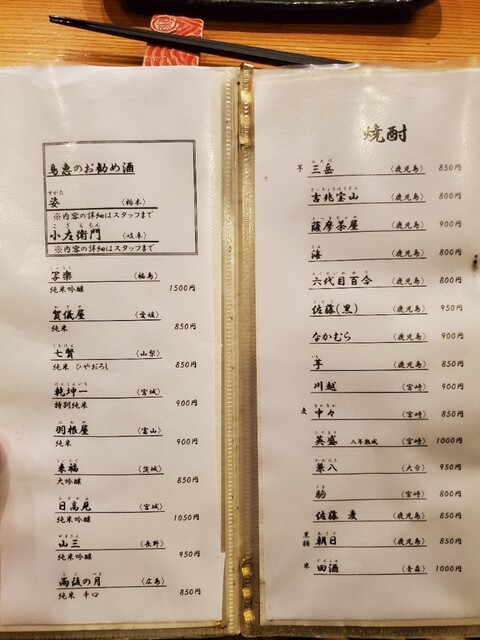 鳥恵のお勧め酒
すがた
姿 (栃木)
※内容の詳細はスタッフまで
こざえもん
小左衛門 (岐阜)
※内容の詳細はスタッフまで
写樂 (福島)
純米吟醸 1500円
賀儀屋 (愛媛)
純米 850円
しちけん
七賢 (山梨)
純米 ひやおろし 850円
けんこんいち
乾坤一 (宮城)
特別純米 900円
羽根屋 (富山)
純米 900円
らいふく
来福 (茨城)
大吟醸 850円
ひたかみ
日高見 (宮城)
純米吟醸 1050円
山三 (長野)
純米吟醸 950円
雨後の月 (広島)
純米 辛口 850円
焼酎
芋 三岳 (鹿児島) 850円
吉兆宝山 (鹿児島) 800円
薩摩茶屋 (鹿児島) 900円
海 (鹿児島) 800円
六代目百合 (鹿児島) 800円
佐藤(黒) (鹿児島) 950円
なかむら (鹿児島) 900円
芋 (鹿児島) 850円
川越 (宮崎) 900円
麦 中々 (宮崎) 850円
英盛 八年熟成 (宮崎) 1000円
兼八 (大分) 950円
駒 (宮崎) 800円
佐藤 麦 (鹿児島) 850円
黒糖 朝日 (鹿児島) 850円
米 田酒 (青森) 1000円